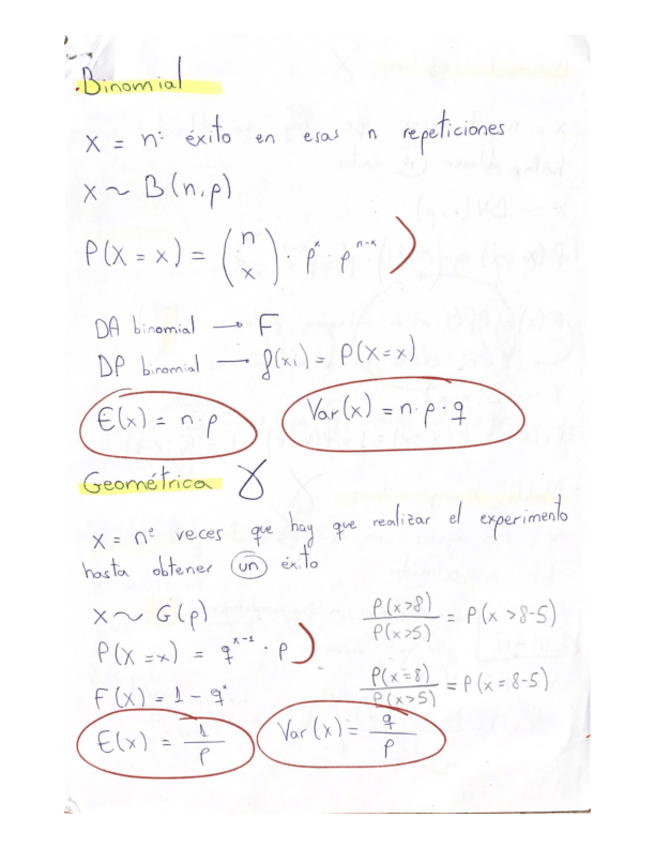 Binomial
X = nº éxito en esas n repeticiones
X ~ B(n,p)
P(X = x) = (n x) · p^x · p^n-x
DA binomial → F
DP binomial → f(xi) = P(X=x)
E(x) = n · p
Var(x) = n · p · q
Geométrica
X = nº veces que hay que realizar el experimento
hasta obtener un éxito
X ~ G(p)
P(X = x) = q^x-1 · p
F(x) = 1 - q^x
E(x) = 1/p
Var(x) = q/p
P(x>8)/P(x>5) = P(x>8-5)
P(x=8)/P(x>5) = P(x=8-5)